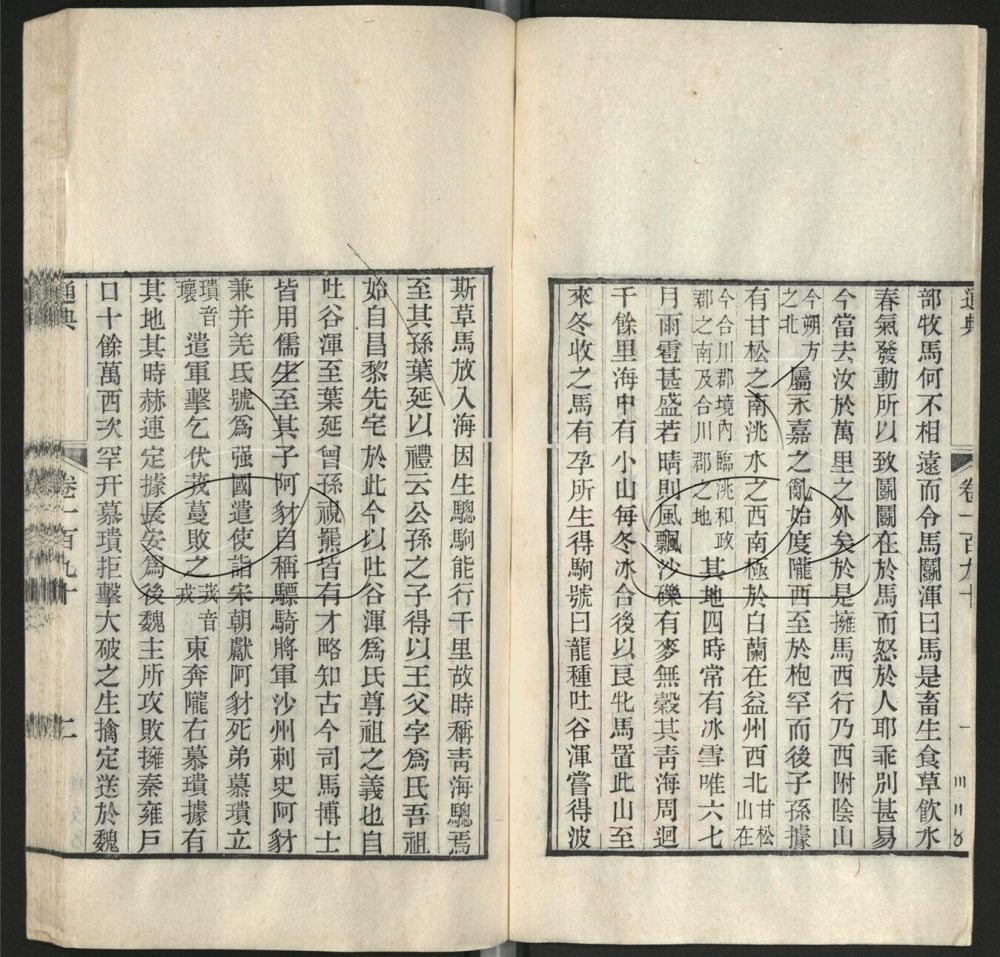 通典
卷一百九十
一
部牧馬何不相遠而令馬鬬渾曰馬是畜生食草飲水
春氣發動所以致鬬鬬在於馬而怒於人耶乖別甚易
今當去汝於萬里之外矣於是擁馬西行乃西附陰山
今朔方之北屬永嘉之亂始度隴西至於枹罕而後子孫據
有甘松之南洮水之西南極於白蘭在益州西北甘松山在
今合川郡境內臨洮和政郡之南及合川郡之地其地四時常有冰雪唯六七
月雨雹甚盛若晴則風飄沙礫有麥無穀其靑海周迴
千餘里海中有小山每冬冰合後以良牝馬置此山至
來冬收之馬有孕所生得駒號曰龍種吐谷渾嘗得波
斯草馬放入海因生驄駒能行千里故時稱靑海驄焉
至其孫葉延以禮云公孫之子得以王父字爲氏吾祖
始自昌黎先宅於此今以吐谷渾爲氏尊祖之義也自
吐谷渾至葉延曾孫視羆皆有才略知古今司馬博士
皆用儒生至其子阿豺自稱驃騎將軍沙州刺史阿豺
兼并羌氏號爲强國遣使詣宋朝獻阿豺死弟慕璝立
璝音瓌遣軍擊乞伏茂蔓敗之茂音戎東奔隴右慕璝據有
其地其時赫連定據長安爲後魏主所攻敗擁秦雍戶
口十餘萬西次罕幵慕璝拒擊大破之生擒定送於魏
通典
卷一百九十
二